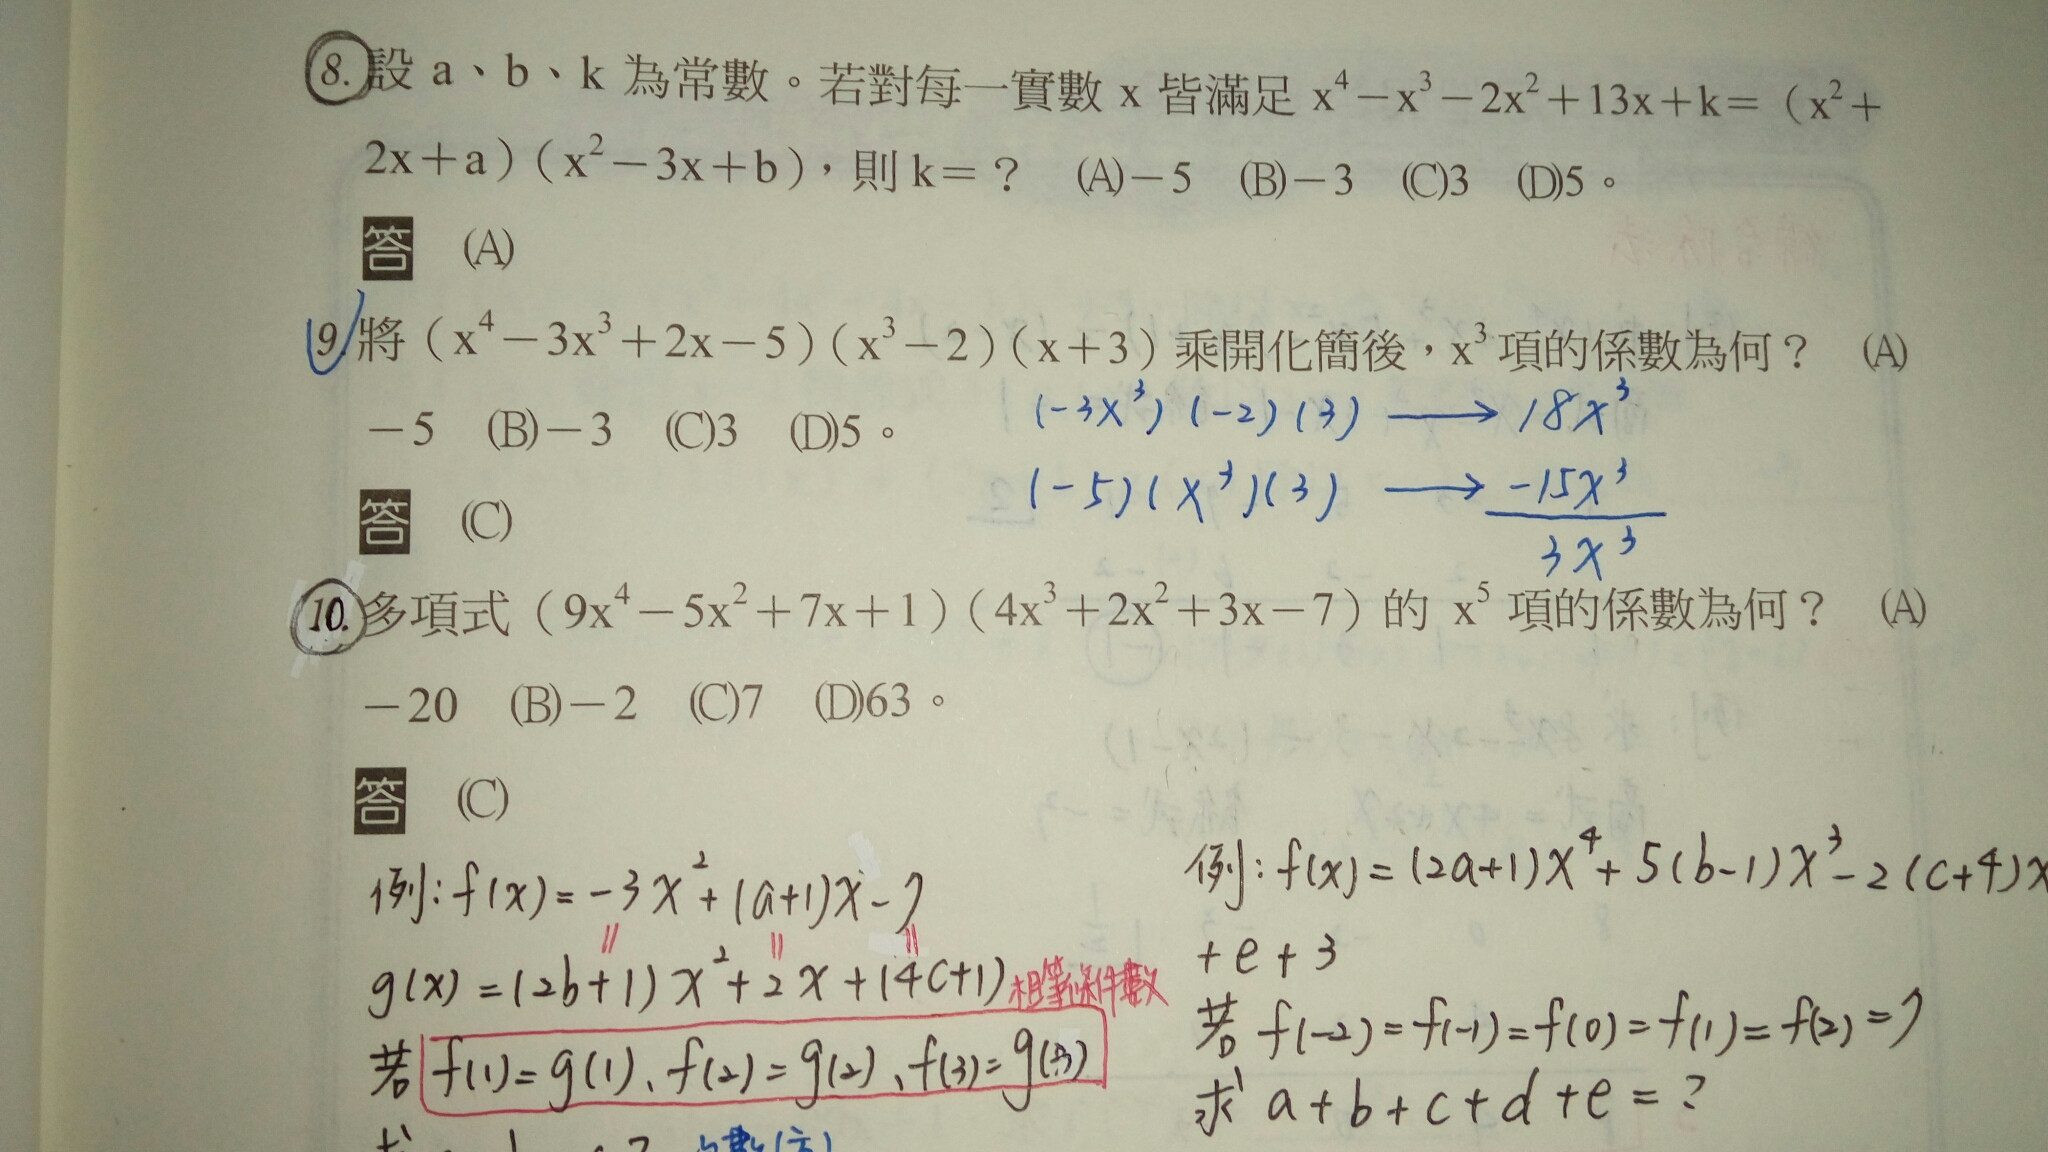 8. 設 a、b、k 為常數。若對每一實數 x 皆滿足 x⁴－x³－2x²＋13x＋k＝（x²＋
2x＋a）（x²－3x＋b），則 k＝？ (A)－5 (B)－3 (C)3 (D)5。
答 (A)
9. 將（x⁴－3x³＋2x－5）（x³－2）（x＋3）乘開化簡後，x³ 項的係數為何？ (A)
－5 (B)－3 (C)3 (D)5。
(-3x³)(-2)(3) → 18x³
(-5)(x³)(3) → -15x³
3x³
答 (C)
10. 多項式（9x⁴－5x²＋7x＋1）（4x³＋2x²＋3x－7）的 x⁵ 項的係數為何？ (A)
－20 (B)－2 (C)7 (D)63。
答 (C)
例: f(x) = -3x² + (a+1)x - 7
g(x) = (2b+1)x² + 2x + (4c+1) 相等條件數
若 f(1) = g(1)、f(2) = g(2)、f(3) = g(3)
例: f(x) = (2a+1)x⁴ + 5(b-1)x³ - 2(c+4)x
+ e + 3
若 f(-2) = f(-1) = f(0) = f(1) = f(2) = 7
求 a + b + c + d + e = ?